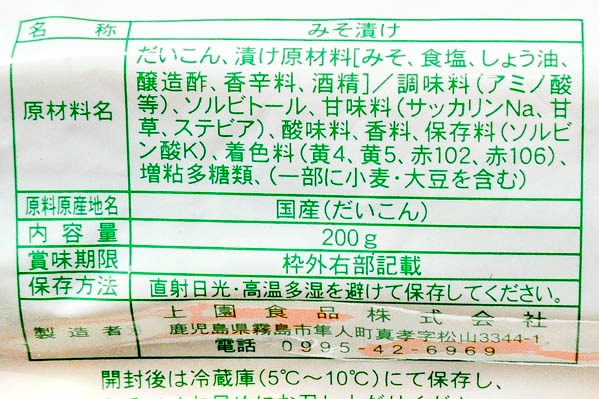 名称 みそ漬け
原材料名 だいこん、漬け原材料[みそ、食塩、しょう油、
醸造酢、香辛料、酒精]／調味料(アミノ酸
等)、ソルビトール、甘味料(サッカリンNa、甘
草、ステビア)、酸味料、香料、保存料(ソルビ
ン酸K)、着色料(黄4、黄5、赤102、赤106)、
増粘多糖類、(一部に小麦・大豆を含む)
原料原産地名 国産(だいこん)
内容量 200g
賞味期限 枠外右部記載
保存方法 直射日光・高温多湿を避けて保存してください。
製造者 上園食品株式会社
鹿児島県霧島市隼人町真孝字松山3344-1
電話 0995-42-6969
開封後は冷蔵庫(5℃～10℃)にて保存し、